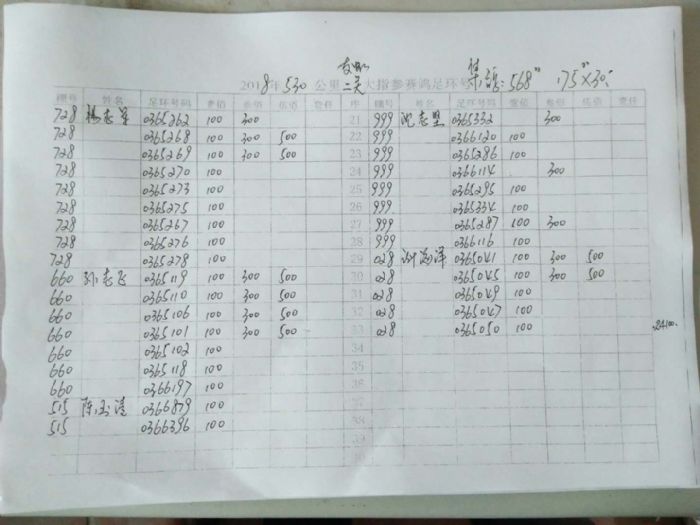 2018年530公里二关大指参赛鸽足环号 集鸽:568" 175"×30'
棚号 姓名 足环号码 壹佰 叁佰 伍佰 责任 序 棚号 姓名 足环号码 壹佰 叁佰 伍佰 责任
728 杨志军 0365262 100 300 21 999 沈志坚 0365332 300
728 0365268 100 300 500 22 999 0366120 100
728 0365269 100 300 500 23 999 0365286 100
728 0365270 100 24 999 0366114 300
728 0365273 100 25 999 0365295 100
728 0365275 100 26 999 0365334 100
728 0365267 100 27 999 0365287 100 300
728 0365276 100 28 999 0366116 100
728 0365278 100 29 028 谢海洋 0365041 100 300 500
660 孙志飞 0365119 100 300 500 30 028 0365045 100 300 500
660 0365110 100 300 500 31 028 0365049 100
660 0365106 100 300 500 32 028 0365047 100
660 0365101 100 300 500 33 028 0365050 100
660 0365102 100 34
660 0365118 100 35
660 0366197 100 36
515 陈玉清 0366879 100 37
515 0366396 100 38
39